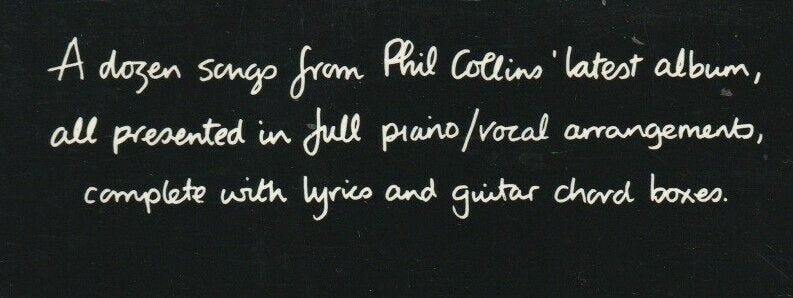 A dozen songs from Phil Collins' latest album,
all presented in full piano/vocal arrangements,
complete with lyrics and guitar chord boxes.